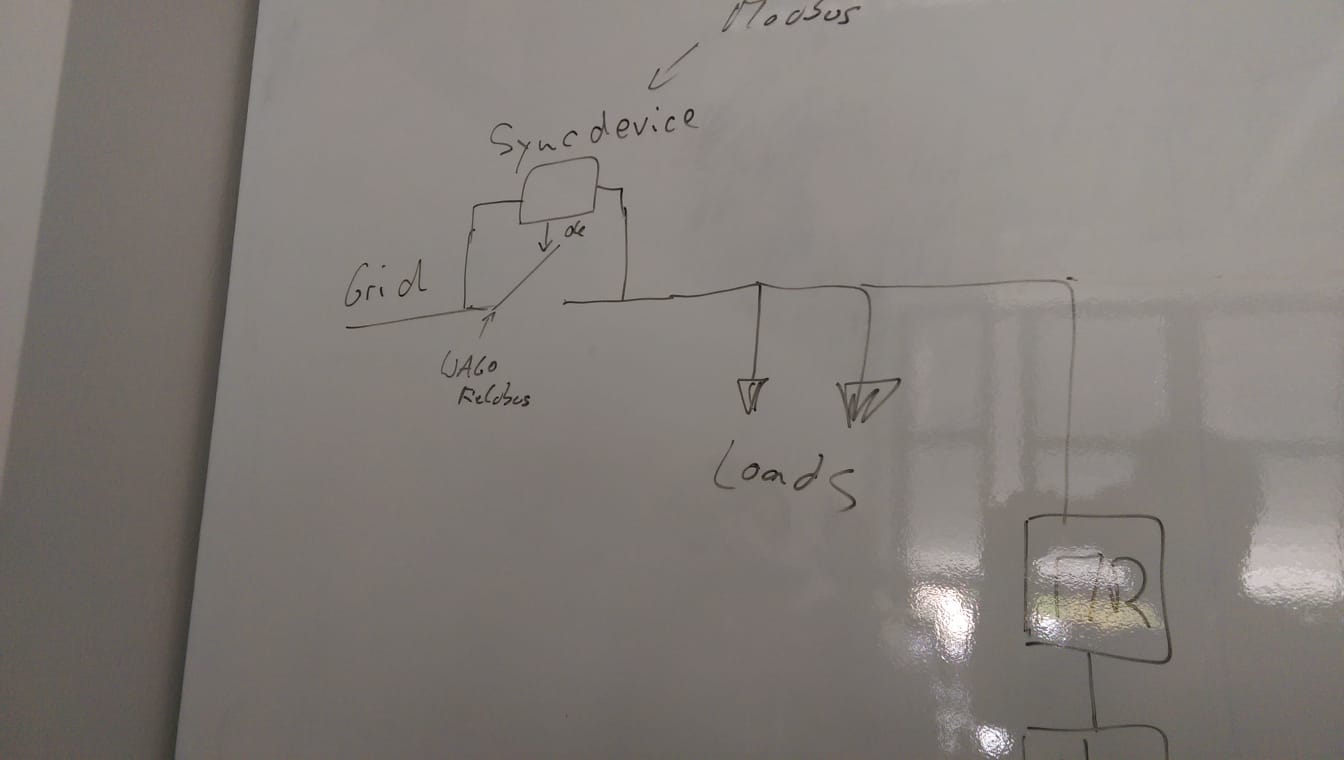 Modbus
Sync device
Grid
WAGO
Feldbus
Loads